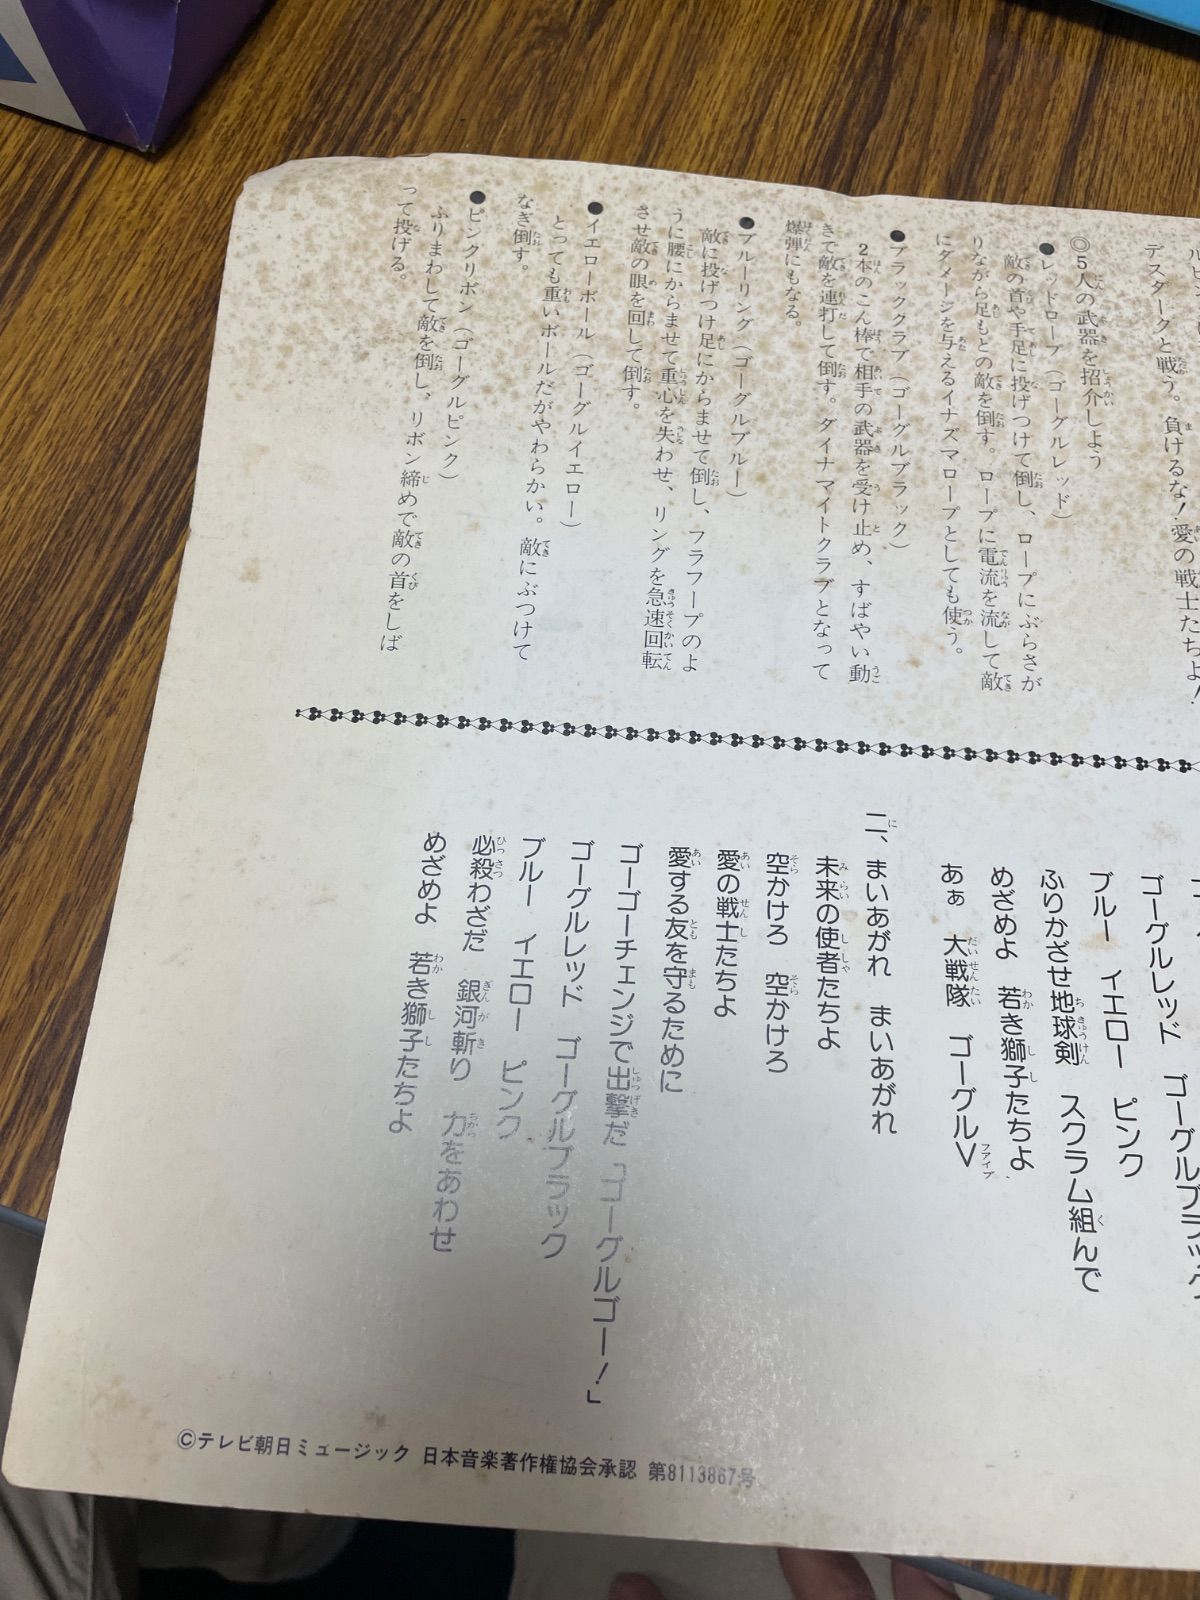 デスダークと戦う。負けるな！愛の戦士たちよ！
◎5人の武器を招介しよう
●レッドロープ（ゴーグルレッド）
敵の首や手足に投げつけて倒し、ロープにぶらさが
りながら足もとの敵を倒す。ロープに電流を流して敵
にダメージを与えるイナズマロープとしても使う。
●ブラッククラブ（ゴーグルブラック）
2本のこん棒で相手の武器を受け止め、すばやい動
きで敵を連打して倒す。ダイナマイトクラブとなって
爆弾にもなる。
●ブルーリング（ゴーグルブルー）
敵に投げつけ足にからませて倒し、フラフープのよ
うに腰にからませて重心を失わせ、リングを急速回転
させ敵の眼を回して倒す。
●イエローボール（ゴーグルイエロー）
とっても重いボールだがやわらかい。敵にぶつけて
なぎ倒す。
●ピンクリボン（ゴーグルピンク）
ふりまわして敵を倒し、リボン締めで敵の首をしば
って投げる。
ゴーグルレッド　ゴーグルブラック
ブルー　イエロー　ピンク
ふりかざせ地球剣　スクラム組んで
めざめよ　若き獅子たちよ
あぁ　大戦隊　ゴーグルV
二、まいあがれ　まいあがれ
未来の使者たちよ
空かけろ　空かけろ
愛の戦士たちよ
愛する友を守るために
ゴーゴーチェンジで出撃だ「ゴーグルゴー！」
ゴーグルレッド　ゴーグルブラック
ブルー　イエロー　ピンク
必殺わざだ　銀河斬り　力をあわせ
めざめよ　若き獅子たちよ
©テレビ朝日ミュージック 日本音楽著作権協会承認 第8113867号